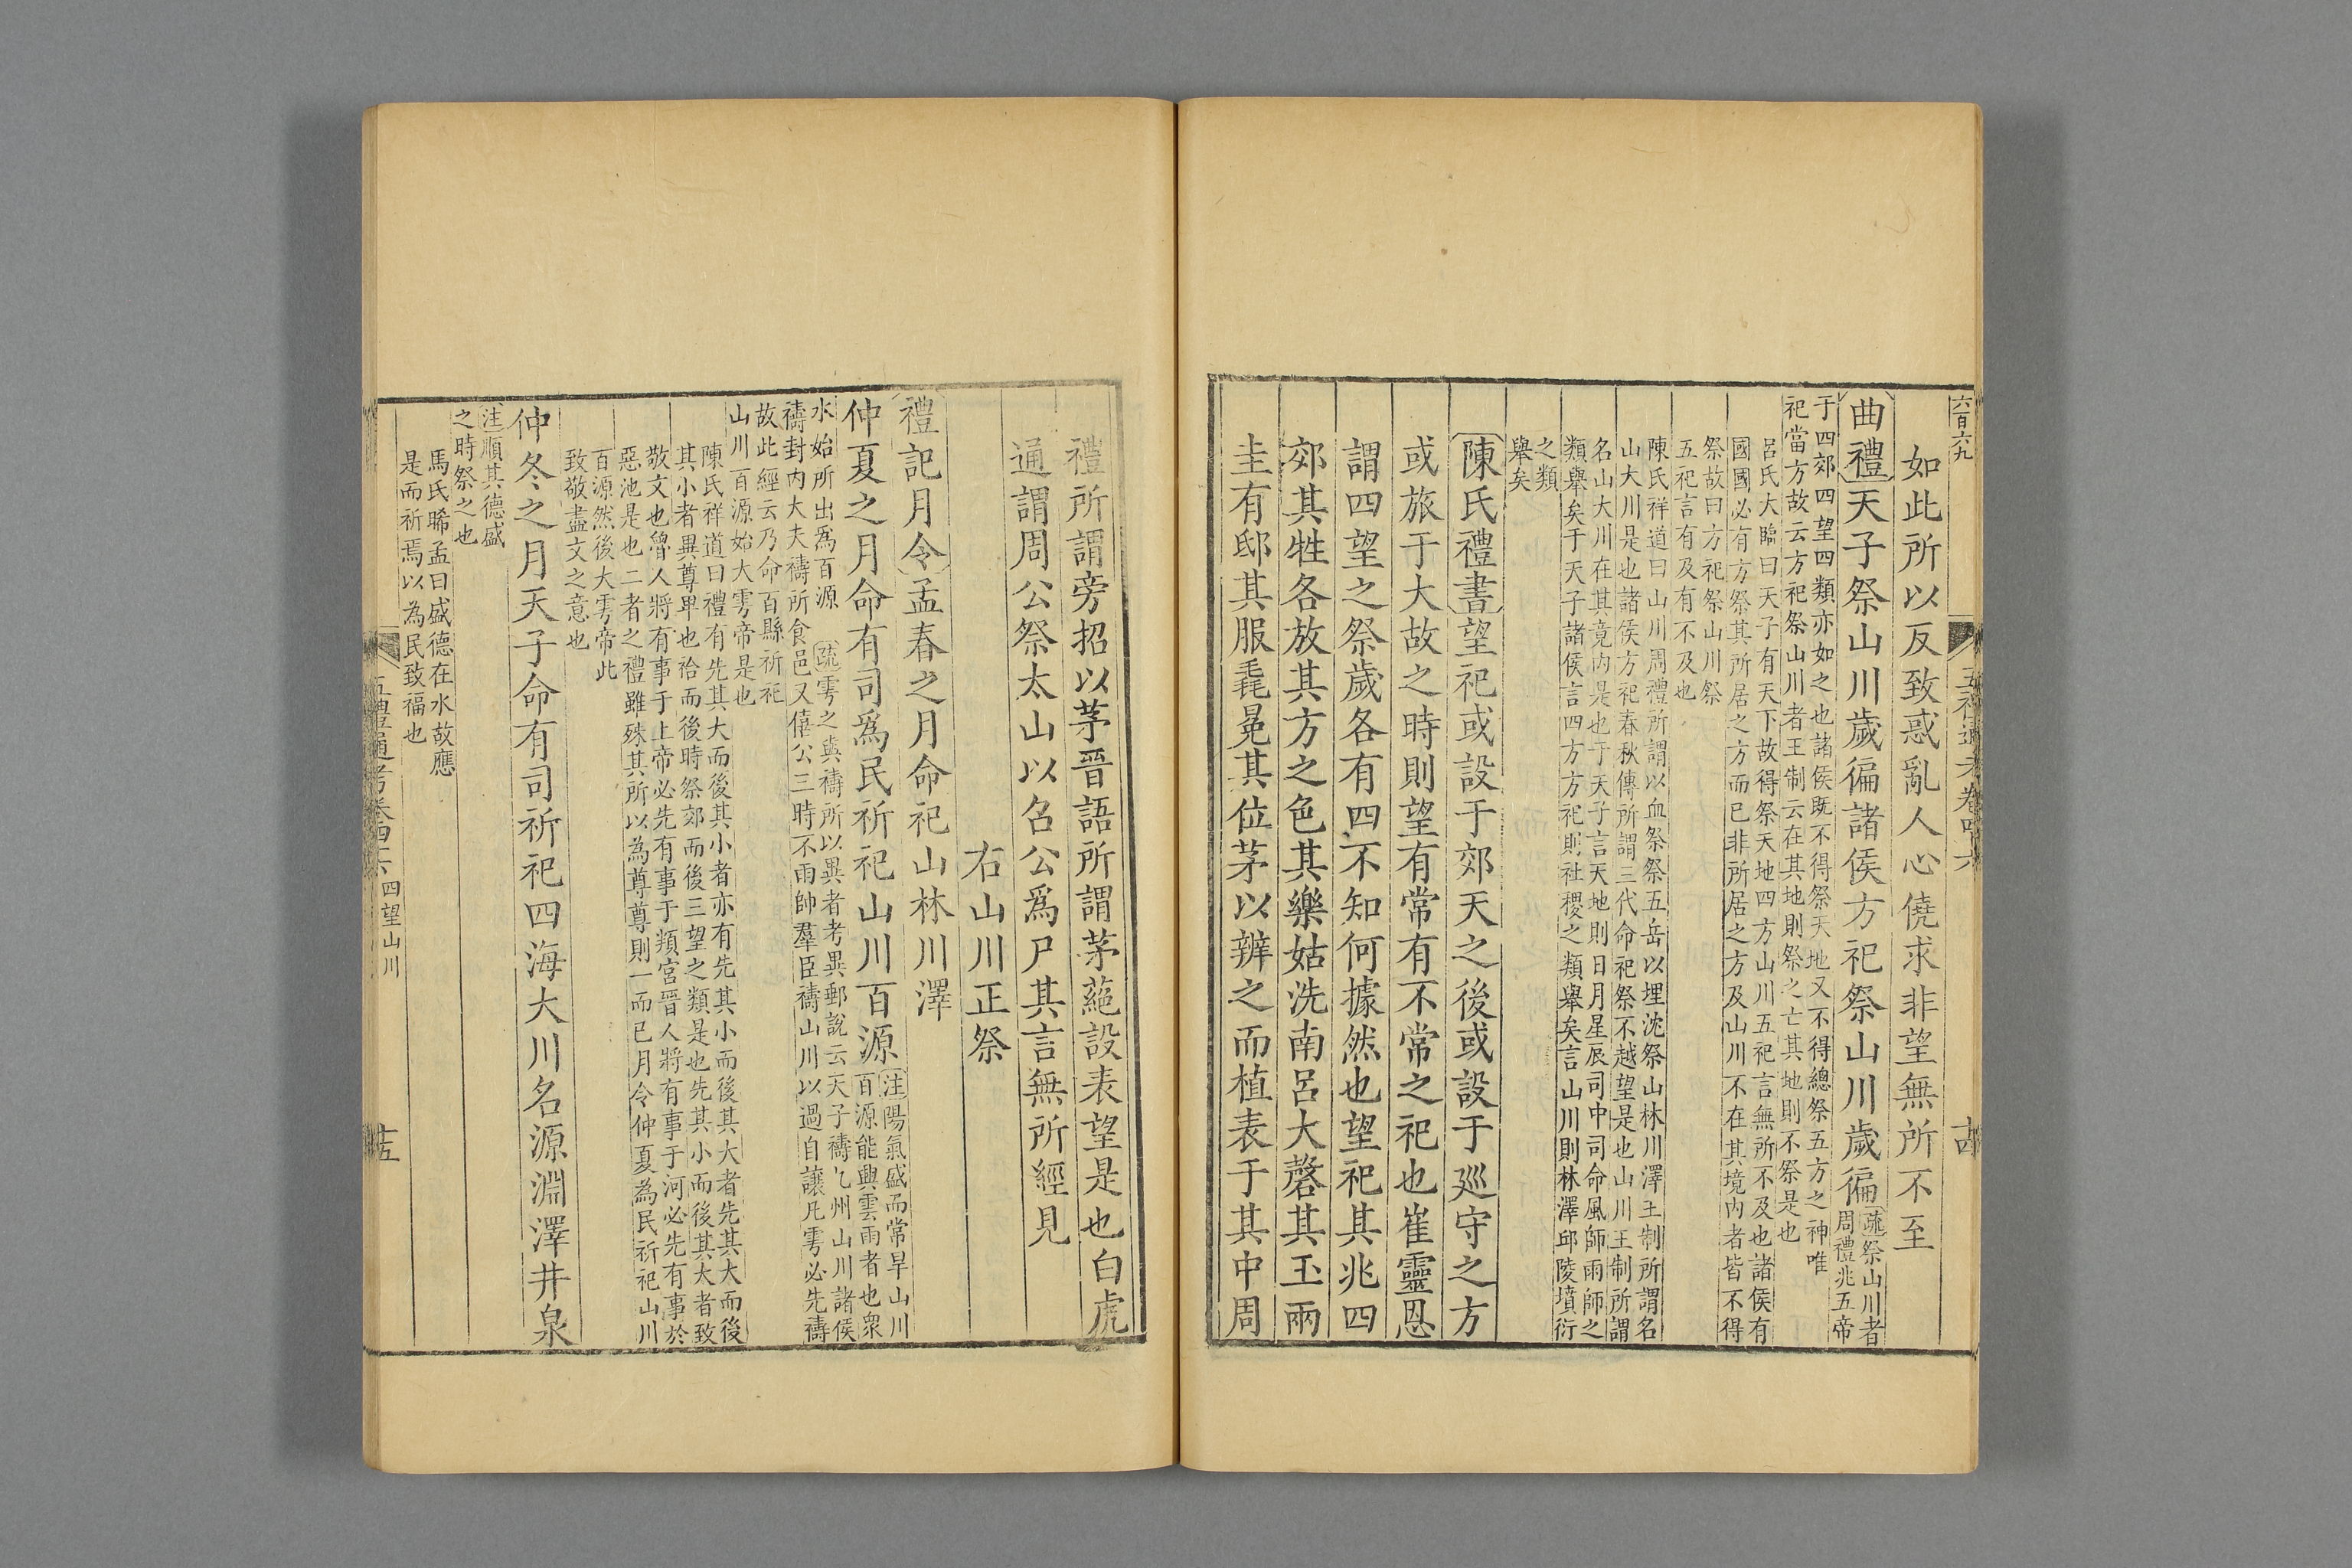 六百六九
五禮通考卷四十六
十四
如此所以反致惑亂人心僥求非望無所不至
曲禮天子祭山川歲徧諸侯方祀祭山川歲徧
疏祭山川者
周禮兆五帝
于四郊四望四類亦如之也諸侯既不得祭天地又不得總祭五方之神唯
祀當方故云方祀祭山川者王制云在其地則祭之亡其地則不祭是也
呂氏大臨曰天子有天下故得祭天地四方山川五祀言無所不及也諸侯有
國國必有方祭其所居之方而已非所居之方及山川不在其境內者皆不得
祭故曰方祀祭山川祭
五祀言有及有不及也
陳氏祥道曰山川周禮所謂以血祭祭五岳以埋沈祭山林川澤王制所謂名
山大川是也諸侯方祀春秋傳所謂三代命祀祭不越望是也山川王制所謂
名山大川在其竟內是也于天子言天地則日月星辰司中司命風師雨師之
類舉矣于天子諸侯言四方方祀則社稷之類舉矣言山川則林澤邱陵墳衍
之類
舉矣
陳氏禮書望祀或設于郊天之後或設于廵守之方
或旅于大故之時則望有常有不常之祀也崔靈恩
謂四望之祭歲各有四不知何據然也望祀其兆四
郊其牲各放其方之色其樂姑洗南呂大磬其玉兩
圭有邸其服毳冕其位茅以辨之而植表于其中周
禮所謂旁招以茅晉語所謂茅蕝設表望是也白虎
通謂周公祭太山以召公爲尸其言無所經見
右山川正祭
禮記月令孟春之月命祀山林川澤
仲夏之月命有司爲民祈祀山川百源
注陽氣盛而常旱山川
百源能興雲雨者也衆
水始所出爲百源
疏雩之與禱所以異者考異郵說云天子禱九州山川諸侯
禱封內大夫禱所食邑又僖公三時不雨帥羣臣禱山川以過自讓凡雩必先禱
故此經云乃命百縣祈祀
山川百源始大雩帝是也
陳氏祥道曰禮有先其大而後其小者亦有先其小而後其大者先其大而後
其小者異尊卑也祫而後時祭郊而後三望之類是也先其小而後其大者致
敬文也魯人將有事于上帝必先有事于頖宮晉人將有事于河必先有事於
惡池是也二者之禮雖殊其所以為尊尊則一而已月令仲夏為民祈祀山川
百源然後大雩帝此
致敬盡文之意也
仲冬之月天子命有司祈祀四海大川名源淵澤井泉
注順其德盛
之時祭之也
馬氏睎孟曰盛德在水故應
是而祈焉以為民致福也
五禮通考卷四十六
四望山川
十五